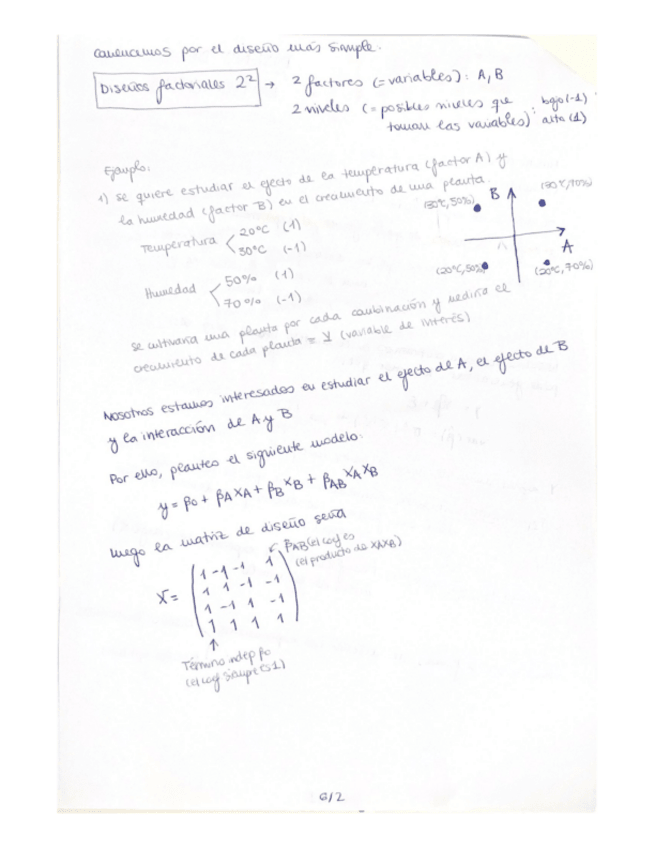 comencemos por el diseño más simple.
Diseños factoriales 2² → 2 factores (= variables): A, B
2 niveles (= posibles niveles que
toman las variables): bajo (-1)
alto (1)
Ejemplo:
1) Se quiere estudiar el efecto de la temperatura (factor A) y
la humedad (factor B) en el crecimiento de una planta.
Temperatura < 20°C (1)
30°C (-1)
Humedad < 50% (1)
70% (-1)
B
A
(30°C, 50%)
(30°C, 70%)
(20°C, 50%)
(20°C, 70%)
Se cultivaría una planta por cada combinación y mediría el
crecimiento de cada planta = Y (variable de interés)
Nosotros estamos interesados en estudiar el efecto de A, el efecto de B
y la interacción de A y B
Por ello, planteo el siguiente modelo:
y = β0 + βA XA + βB XB + βAB XA XB
luego la matriz de diseño sería
βAB (el coef es
(el producto de XAXB)
X = ( 1 -1 -1 1
1 1 -1 -1
1 -1 1 -1
1 1 1 1 )
↑
Término indep β0
(el coef siempre es 1)
6/2